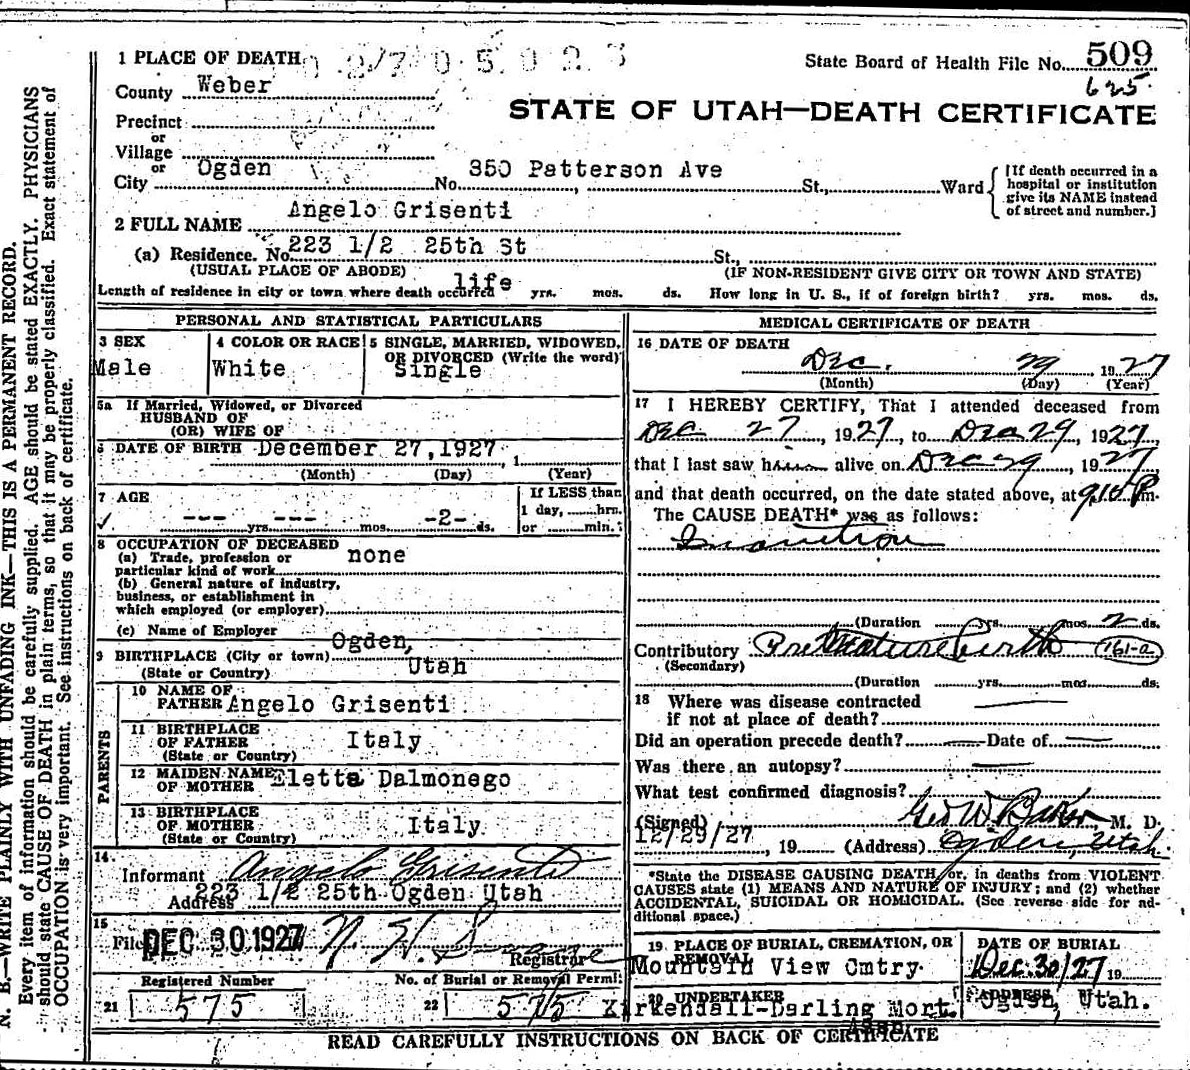 1 PLACE OF DEATH
0 2 7 0 5 0 2 3
State Board of Health File No. 509
625.
County Weber
STATE OF UTAH—DEATH CERTIFICATE
Precinct
or
Village
or
City Ogden No. 350 Patterson Ave St., Ward
[If death occurred in a
hospital or institution
give its NAME instead
of street and number.]
2 FULL NAME Angelo Grisenti
(a) Residence. No. 223 1/2 25th St St.,
(USUAL PLACE OF ABODE) (IF NON-RESIDENT GIVE CITY OR TOWN AND STATE)
Length of residence in city or town where death occurred life yrs. mos. ds. How long in U. S., if of foreign birth? yrs. mos. ds.
PERSONAL AND STATISTICAL PARTICULARS
3 SEX
Male
4 COLOR OR RACE
White
5 SINGLE, MARRIED, WIDOWED,
OR DIVORCED (Write the word)
Single
5a If Married, Widowed, or Divorced
HUSBAND OF
(OR) WIFE OF
6 DATE OF BIRTH December 27,1927, 1
(Month) (Day) (Year)
7 AGE
If LESS than
1 day, hrs.
or min.
--- yrs. --- mos. -2- ds.
8 OCCUPATION OF DECEASED
(a) Trade, profession or
particular kind of work none
(b) General nature of industry,
business, or establishment in
which employed (or employer)
(c) Name of Employer
9 BIRTHPLACE (City or town) Ogden,
(State or Country) Utah
PARENTS
10 NAME OF
FATHER Angelo Grisenti
11 BIRTHPLACE
OF FATHER Italy
(State or Country)
12 MAIDEN NAME
OF MOTHER Eletta Dalmonego
13 BIRTHPLACE
OF MOTHER Italy
(State or Country)
14
Informant Angelo Grisenti
Address 223 1/2 25th Ogden Utah
15
Filed DEC 30 1927 N. H.
Registrar
Registered Number
21 575
No. of Burial or Removal Permit
22 575
MEDICAL CERTIFICATE OF DEATH
16 DATE OF DEATH
Dec. 29, 1927
(Month) (Day) (Year)
17 I HEREBY CERTIFY, That I attended deceased from
Dec 27, 1927, to Dec 29, 1927,
that I last saw him alive on Dec 29, 1927
and that death occurred, on the date stated above, at 910 Pm.
The CAUSE DEATH* was as follows:
Inanition
(Duration yrs. mos. 2 ds.
Contributory Premature birth 161-a
(Secondary)
(Duration yrs. mos. ds.
18 Where was disease contracted
if not at place of death?
Did an operation precede death? Date of
Was there an autopsy?
What test confirmed diagnosis?
(Signed) Geo W Baker M. D.
12/29/27, 19 (Address) Ogden, Utah.
*State the DISEASE CAUSING DEATH, or, in deaths from VIOLENT
CAUSES state (1) MEANS AND NATURE OF INJURY; and (2) whether
ACCIDENTAL, SUICIDAL OR HOMICIDAL. (See reverse side for ad-
ditional space.)
19 PLACE OF BURIAL, CREMATION, OR
REMOVAL
Mountain View Cmtry.
DATE OF BURIAL
Dec. 30/27 19
20 UNDERTAKER
Kirkendall-Darling Mort.
Assn.
ADDRESS
Ogden, Utah.
READ CAREFULLY INSTRUCTIONS ON BACK OF CERTIFICATE
N. B.—WRITE PLAINLY WITH UNFADING INK—THIS IS A PERMANENT RECORD.
Every item of information should be carefully supplied. AGE should be stated EXACTLY. PHYSICIANS
should state CAUSE OF DEATH in plain terms, so that it may be properly classified. Exact statement of
OCCUPATION is very important. See instructions on back of certificate.